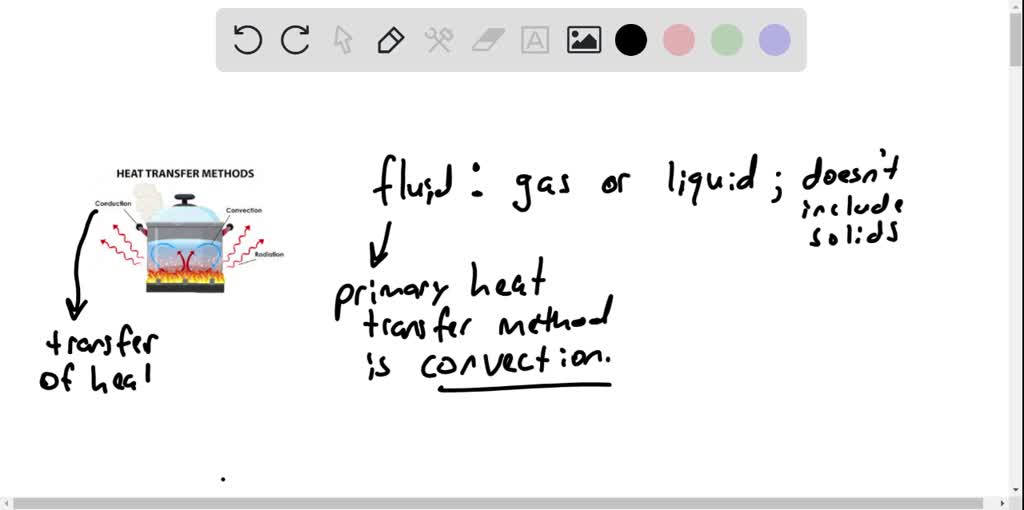 HEAT TRANSFER METHODS
Conduction
Convection
Radiation
transfer
of heat
fluid: gas or liquid; doesn't
include
solids
primary heat
transfer method
is convection.
A